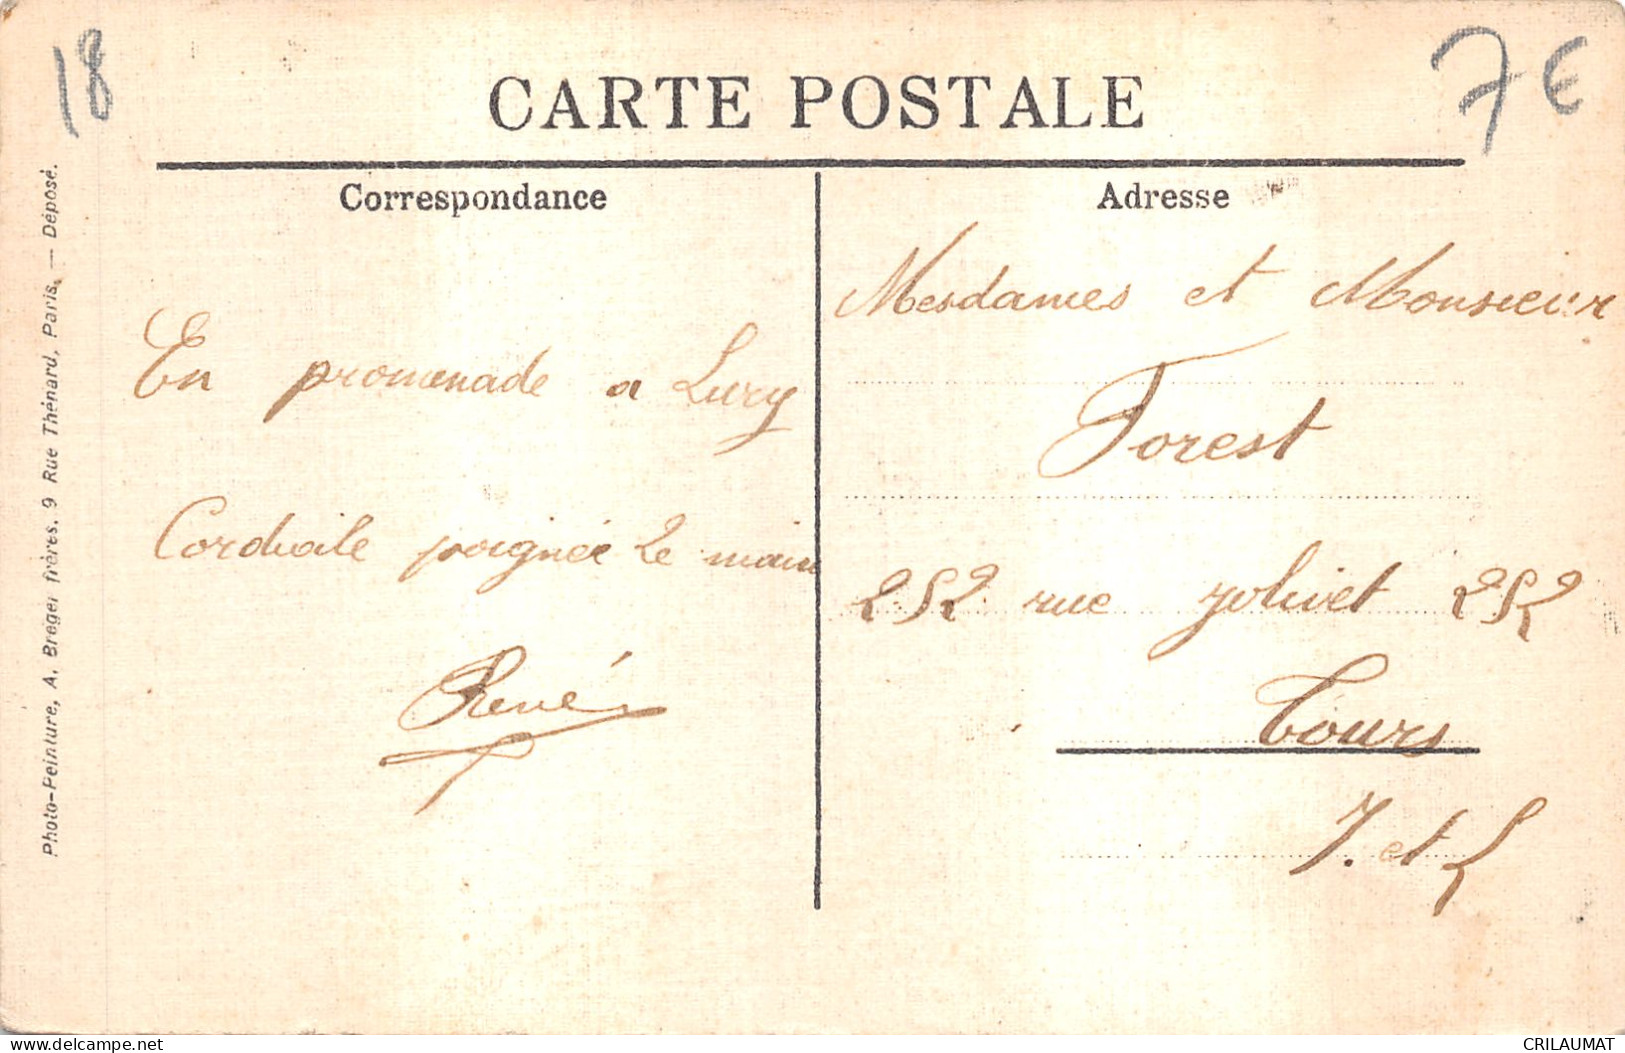 18
7 €
CARTE POSTALE
Correspondance
Adresse
Photo-Peinture, A. Breger frères. 9 Rue Thénard, Paris. — Déposé.
En promenade a Lury
Cordiale poignée de main
René
Mesdames et Monsieur
Forest
252 rue Jolivet 252
Tours
I. et L
delcampe.net
CRILAUMAT